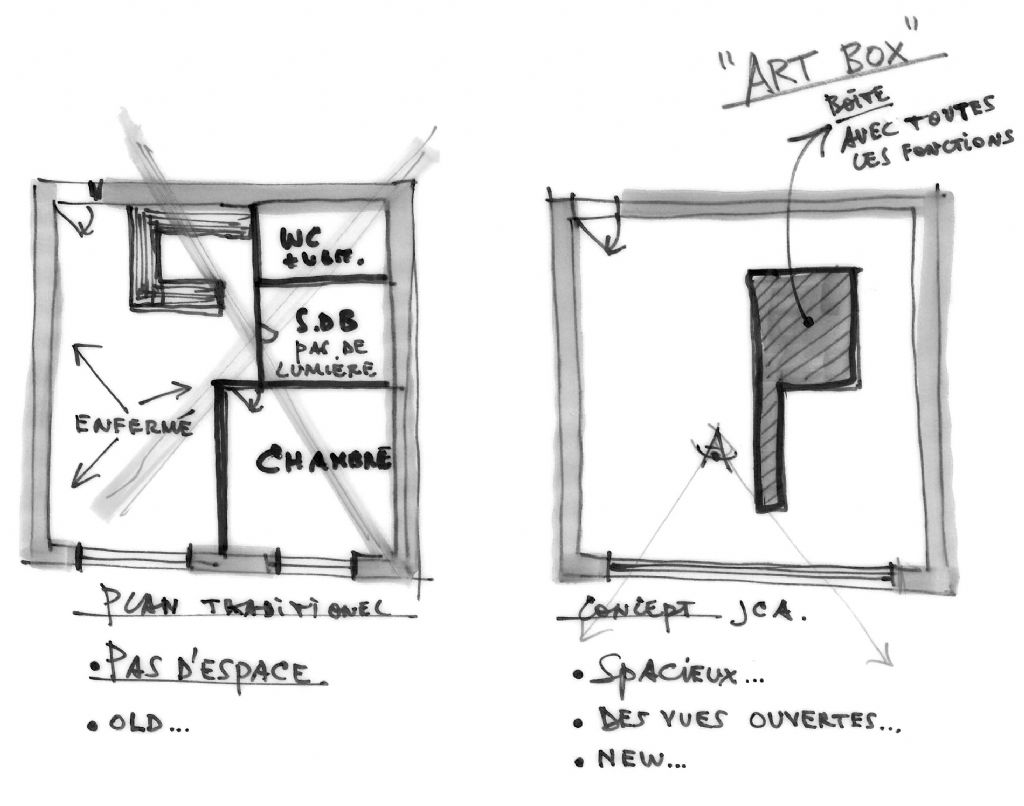 "ART BOX"
BOITE
AVEC TOUTES
LES FONCTIONS
WC
S.DB
PAS DE
LUMIERE
ENFERMÉ
CHAMBRE
PLAN TRADITIONEL
• PAS D'ESPACE.
• OLD...
CONCEPT JCA.
• SPACIEUX...
• DES VUES OUVERTES...
• NEW...